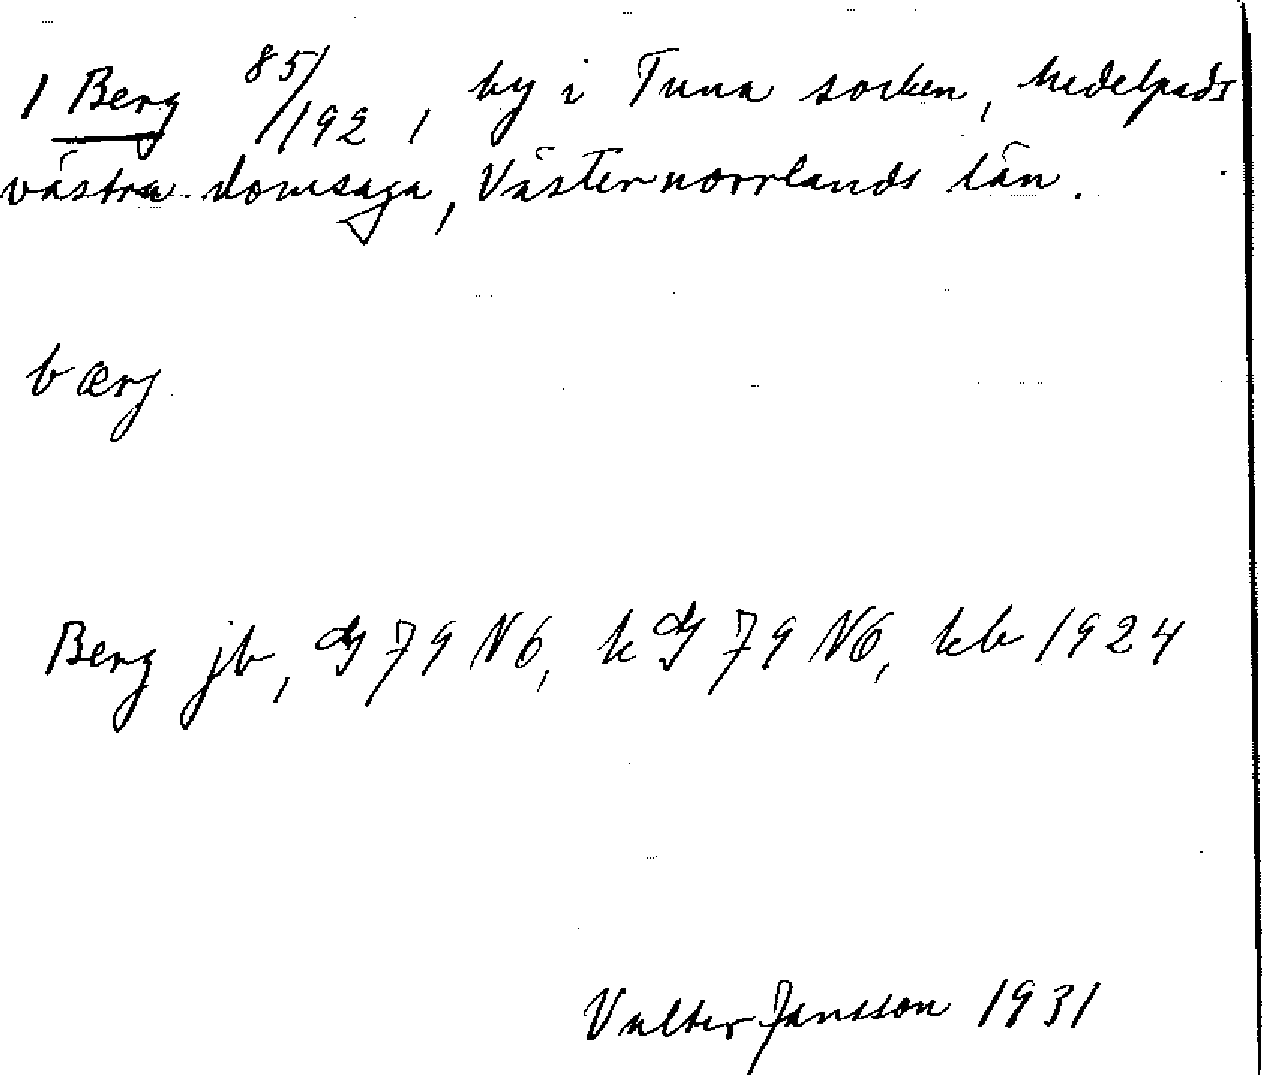 1 Berg 85/192, by i Tuna socken, Medelpads
västra domsaga, Västernorrlands län.
bærj
Berg jb, G 79 N6, kG 79 N6, kb 1924
Valter Jansson 1931